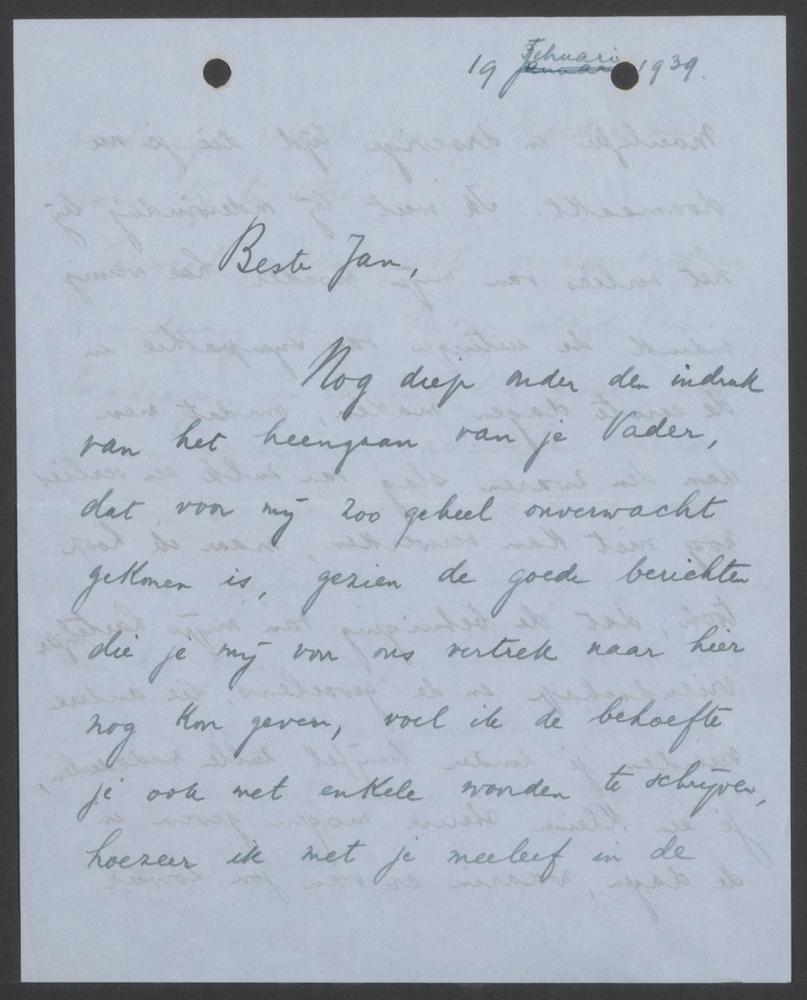 19 Februari 1939.
Beste Jan,
Nog diep onder den indruk
van het heengaan van je Vader,
dat voor mij zoo geheel onverwacht
gekomen is, gezien de goede berichten
die je mij voor ons vertrek naar hier
nog kon geven, voel ik de behoefte
je ook met enkele woorden te schrijven,
hoezeer ik met je meeleef in de